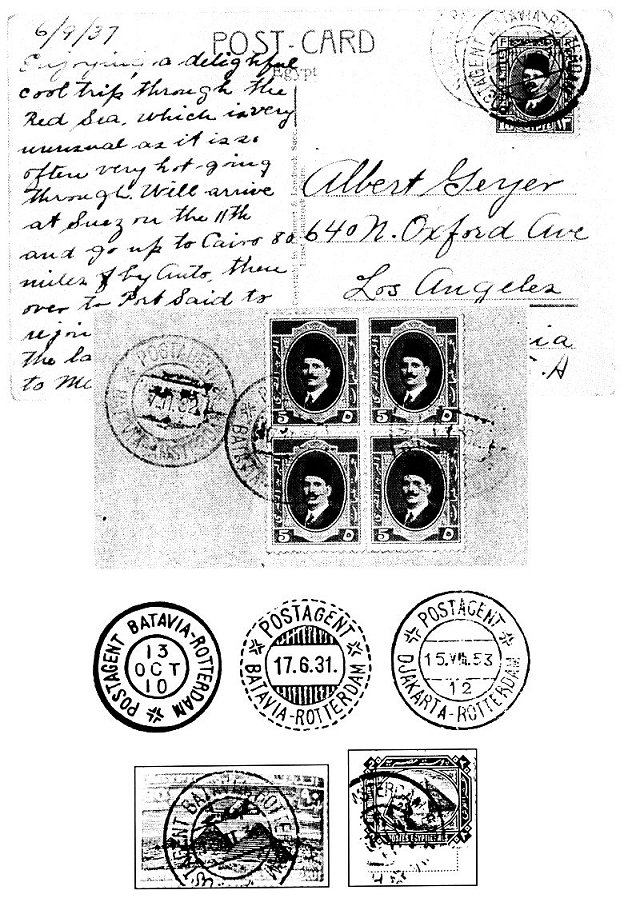 6/9/37
POST-CARD
Egypt
Enjoying a delightful
cool trip through the
Red Sea, which is very
unusual as it is so
often very hot going
through. Will arrive
at Suez on the 11th
and go up to Cairo 80
miles by Auto, then
over to Port Said to
rejoi
the la
to Me
BATAVIA-ROTTERDAM
POSTAGENT
Albert Geyer
640 N. Oxford Ave
Los Angeles
ia
.A
POSTAGENT
5 ٥
5 ٥
5 ٥
5 ٥
POSTAGENT BATAVIA-ROTTERDAM
13
OCT
10
POSTAGENT
17.6.31.
BATAVIA-ROTTERDAM
POSTAGENT
15.VIII.53
12
DJAKARTA-ROTTERDAM
STAGENT BATAVIA-ROTTERDAM